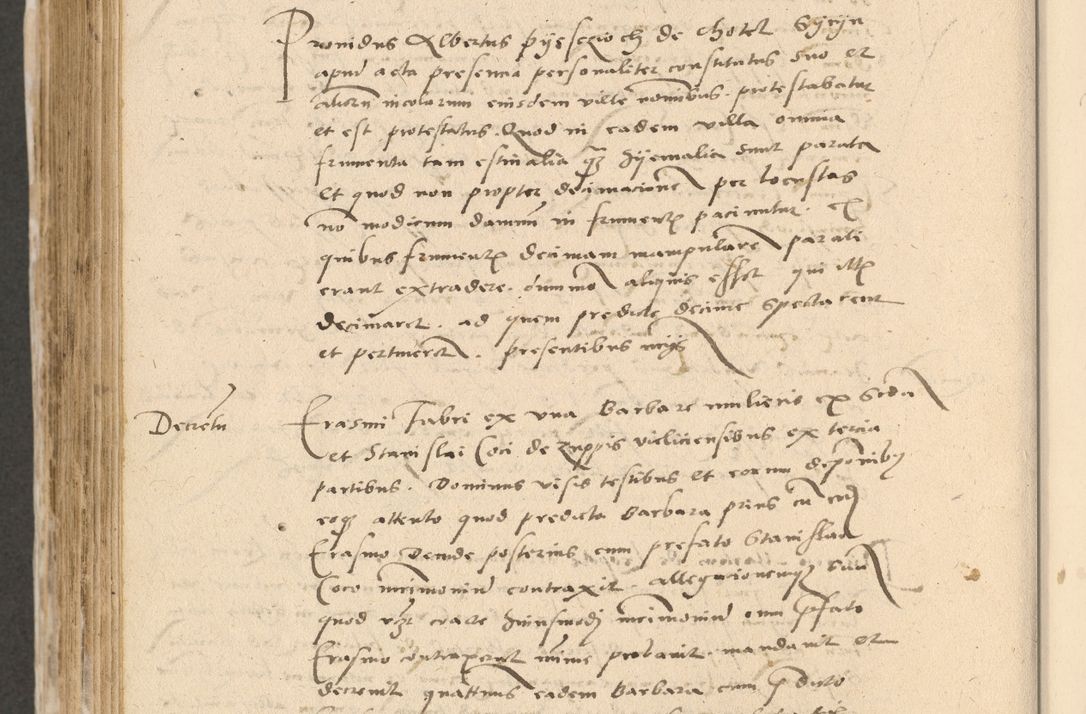 Providus Albertus pijessczioch de Chotel
apud acta presentia personaliter constitutus suo et
aliorum incolarum eiusdem ville nominibus protestabatur
et est protestatus. Quod in eadem villa omnia
frumenta tam estivalia quam hijemalia sunt parata
et quod non propter decimacionem per locustas
non modicum damnum in frumentis paciuntur. Ex
quibus frumentis decimam manipularem parati
erant extradere. dummodo aliquis esset qui illis
decimaret. ad quem predicte decime spectarent
et pertinerent. presentibus
Decretum
Erasmi Fabri ex una Barbare mulieris ex secunda
et Stanislai Coci de Zuppis vieliciensibus ex tercia
partibus. Dominus visis testibus et eorum deponibus
eoque attento quod predicta Barbara prius cum eodem
Erasmo Deinde posterius cum prefato Stanislao
Coco matrimonium contraxit. allegacionemque suam
quod coacte huiusmodi matrimonium cum prefato
Erasmo contraxerit minime probavit. mandavit et
decrevit quattinus eadem Barbara cum predicto